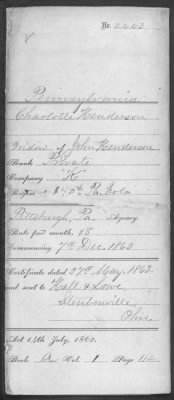 No. 2443
Pennsylvania
Charlotte Henderson
Widow of John Henderson
Rank Private
Company "K"
Regim Pa. Vols
Pittsburgh, Pa. Agency.
Rate per month $8
Commencing 7th Dec. 1862
Certificate dated 27th May 1863.
and sent to Hall & Lowe,
Steubenville,
Ohio.
Act 14th July, 1862.
Book A Vol. 1 Page